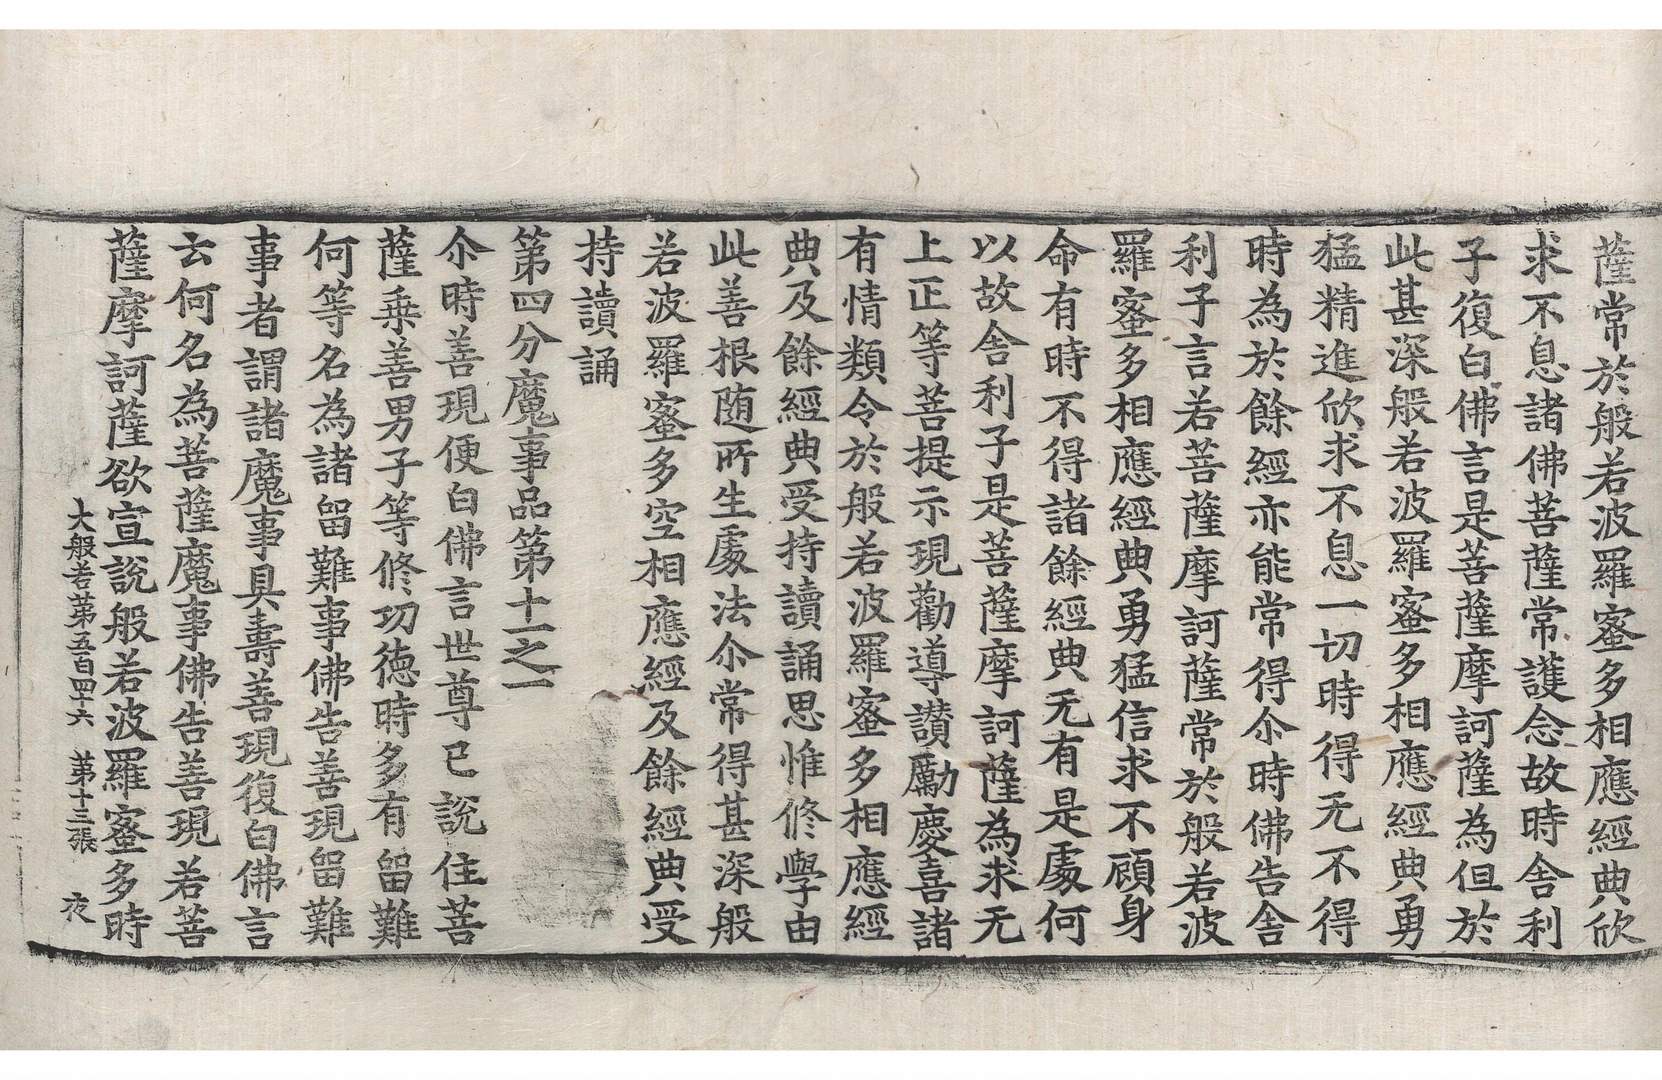 薩常於般若波羅蜜多相應經典欣
求不息諸佛菩薩常護念故時舍利
子復白佛言是菩薩摩訶薩為但於
此甚深般若波羅蜜多相應經典勇
猛精進欣求不息一切時得无不得
時為於餘經亦能常得尒時佛告舍
利子言若菩薩摩訶薩常於般若波
羅蜜多相應經典勇猛信求不顧身
命有時不得諸餘經典无有是處何
以故舍利子是菩薩摩訶薩為求无
上正等菩提示現勸導讃勵慶喜諸
有情類令於般若波羅蜜多相應經
典及餘經典受持讀誦思惟修學由
此善根随所生處法尒常得甚深般
若波羅蜜多空相應經及餘經典受
持讀誦
第四分魔事品第十一之一
尒時善現便白佛言世尊已說住菩
薩乗善男子等修功德時多有留難
何等名為諸留難事佛告善現留難
事者謂諸魔事具壽善現復白佛言
云何名為菩薩魔事佛告善現若菩
薩摩訶薩欲宣說般若波羅蜜多時
大般若第五百四十六 第十三張 夜